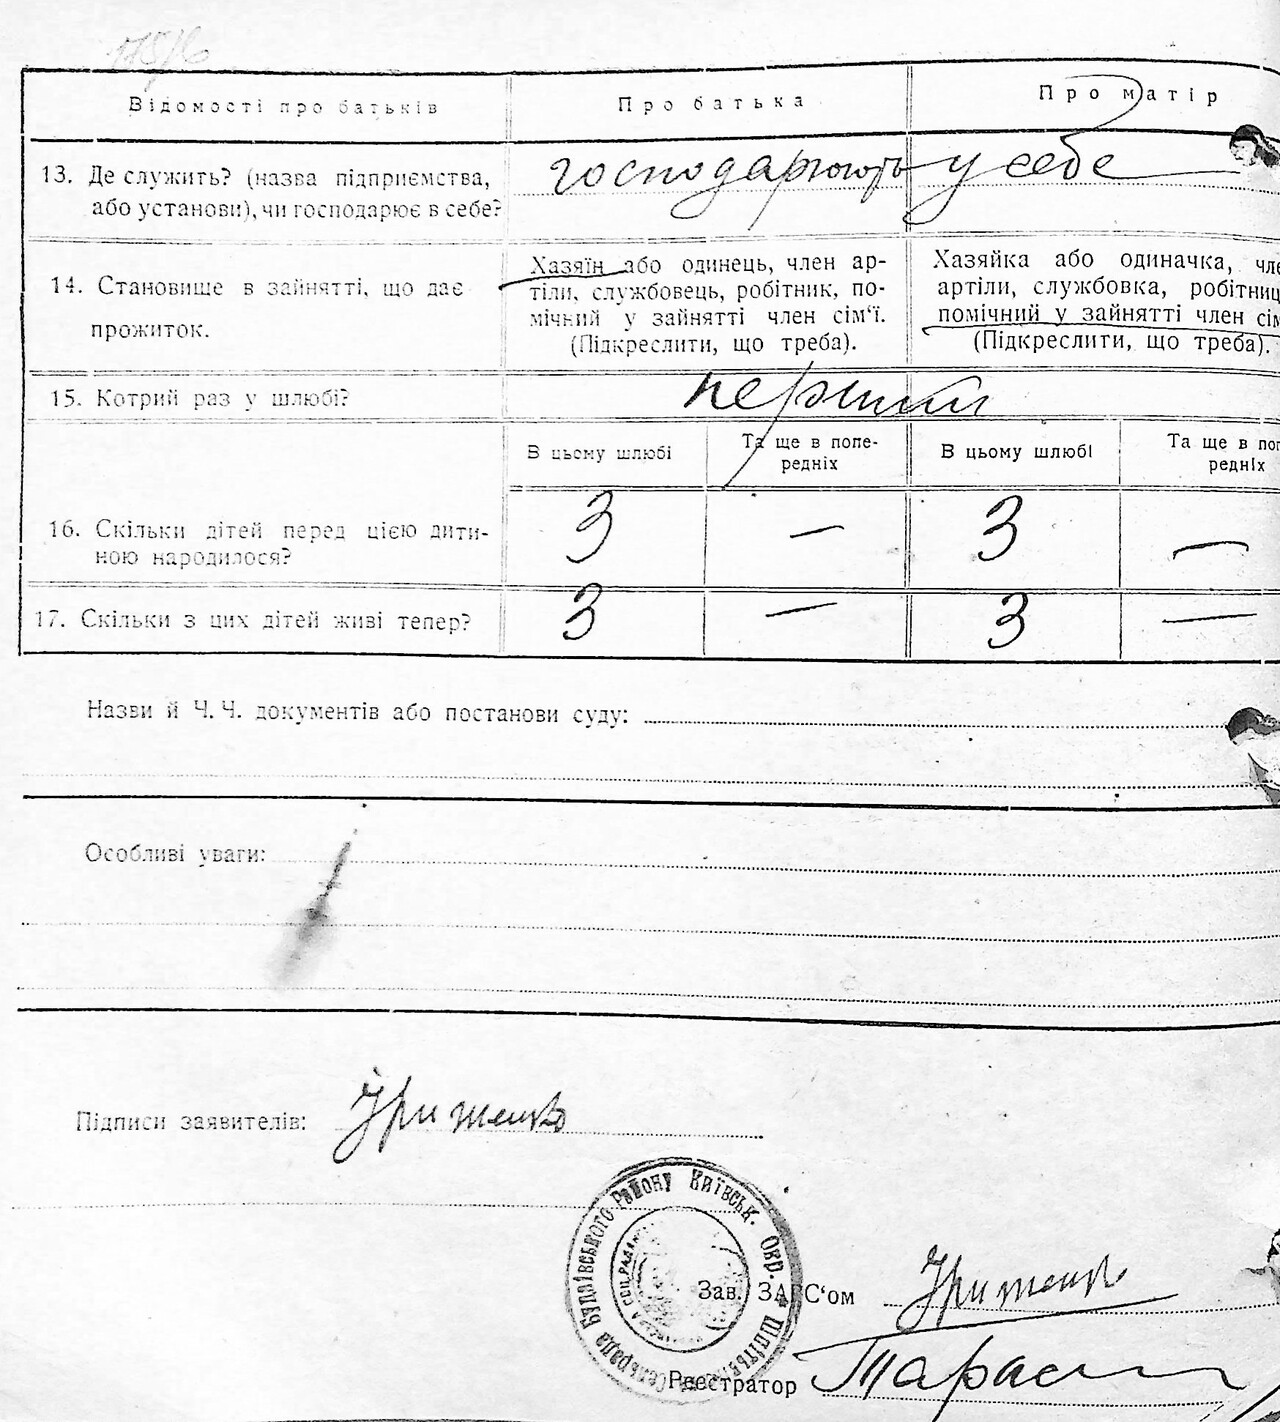 175/6
Відомості про батьків
Про батька
Про матір
13. Де служить? (назва підприємства,
або установи), чи господарює в себе?
господарюють у себе
14. Становище в зайнятті, що дає
прожиток.
Хазяїн або одинець, член ар-
тіли, службовець, робітник, по-
мічний у зайнятті член сім'ї.
(Підкреслити, що треба).
Хазяйка або одиначка, чле
артіли, службовка, робітниц
помічний у зайнятті член сім
(Підкреслити, що треба).
15. Котрий раз у шлюбі?
перший
В цьому шлюбі
Та ще в попе-
редніх
В цьому шлюбі
Та ще в поп
редніх
16. Скільки дітей перед цією дити-
ною народилося?
3 — 3 —
17. Скільки з цих дітей живі тепер?
3 — 3 —
Назви й Ч. Ч. документів або постанови суду:
Особливі уваги:
Підписи заявителів:
Зав. ЗАГС'ом
Реєстратор
Сельрада Будаївського Району Київськ. Окр.